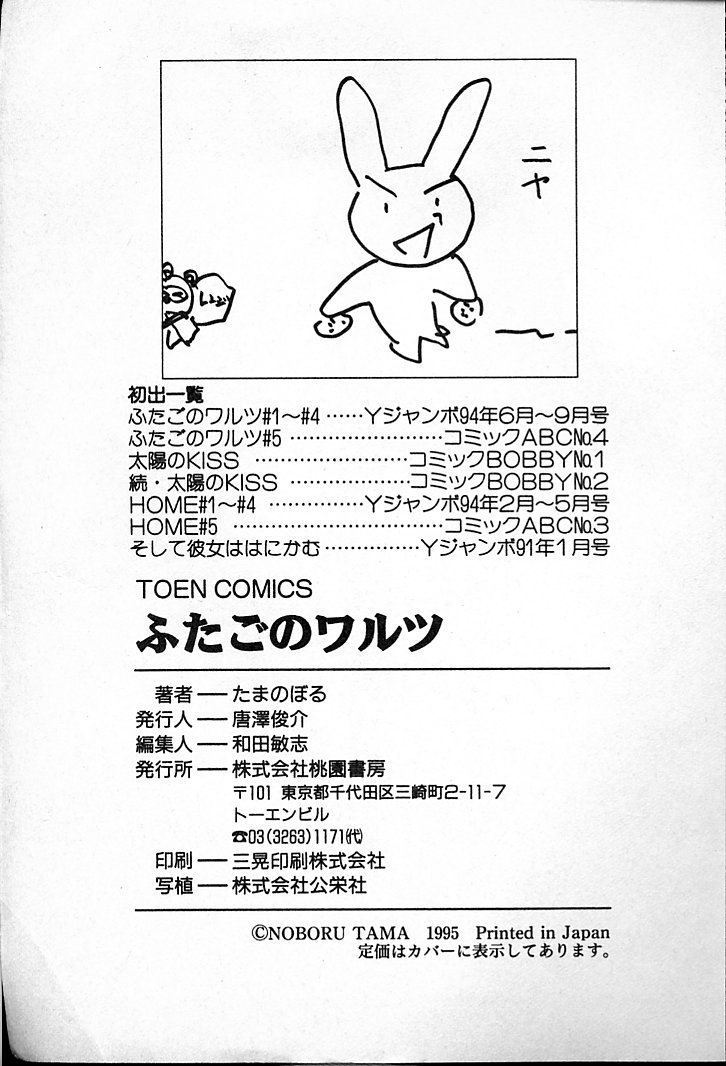 ニヤ
初出一覧
ふたごのワルツ#1〜#4 ……Yジャンボ94年6月〜9月号
ふたごのワルツ#5 ……………………コミックABC№4
太陽のKISS ……………………コミックBOBBY№1
続・太陽のKISS ………………コミックBOBBY№2
HOME#1〜#4 ……………Yジャンボ94年2月〜5月号
HOME#5 ……………………………コミックABC№3
そして彼女ははにかむ……………Yジャンボ91年1月号
TOEN COMICS
ふたごのワルツ
著者──たまのぼる
発行人──唐澤俊介
編集人──和田敏志
発行所──株式会社桃園書房
〒101 東京都千代田区三崎町2-11-7
トーエンビル
☎03(3263)1171㈹
印刷──三晃印刷株式会社
写植──株式会社公栄社
©NOBORU TAMA 1995 Printed in Japan
定価はカバーに表示してあります。